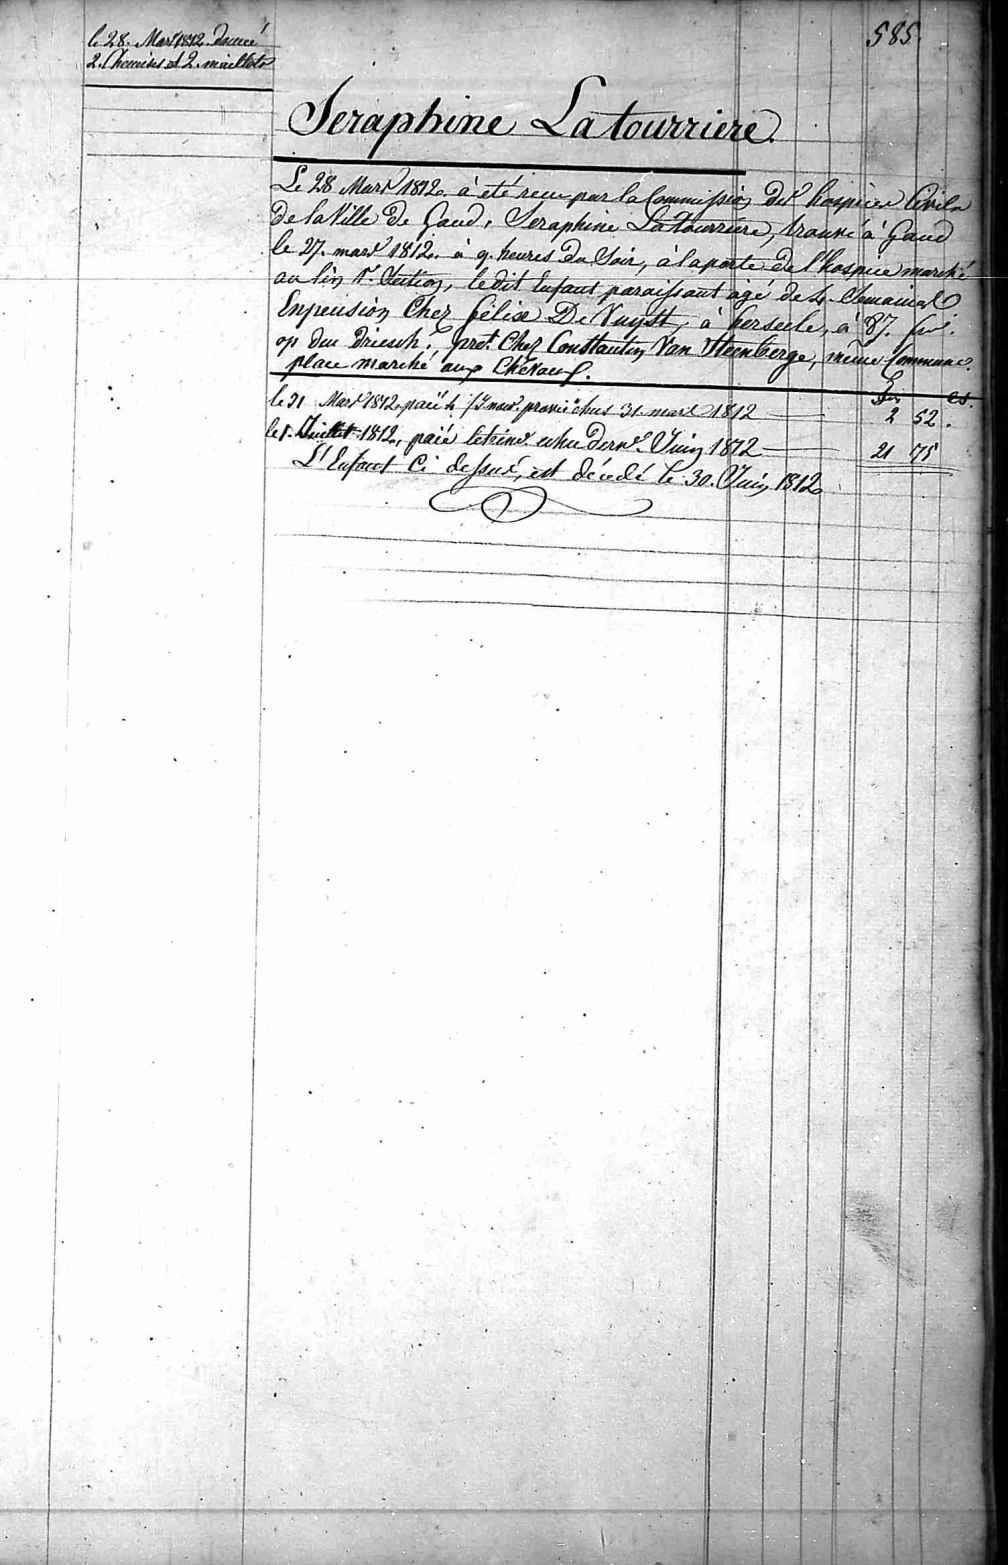 585.
le 28. Mars 1812. donné
2. Chemises et 2. maillots
Seraphine Latourriere.
Le 28 Mars 1812. à été recu par la Commission des hospices Civils
de la Ville de Gand, Seraphine Latourriere, trouvé à Gand
le 27. mars 1812. à 9. heures du Soir, à la porte de l'hospice marché
au lin 1.r Section, le dit Enfant paraissant agé de 4. Semaines
Enpension Chez Félix De Vuyst, à Herseele, à 87. frs.
op den Driesch. pret. Chez Constantin Van Steenberge, même Commune.
place marché aux Chevaux.
frs cs.
le 31 Mars 1812. paié 4 echus 31 mars 1812 2 52.
le 1. Juillet 1812, paié le trime. echu dern.e Juin 1812 21 75
L'Enfant Ci dessus, est décédé le 30. Juin 1812